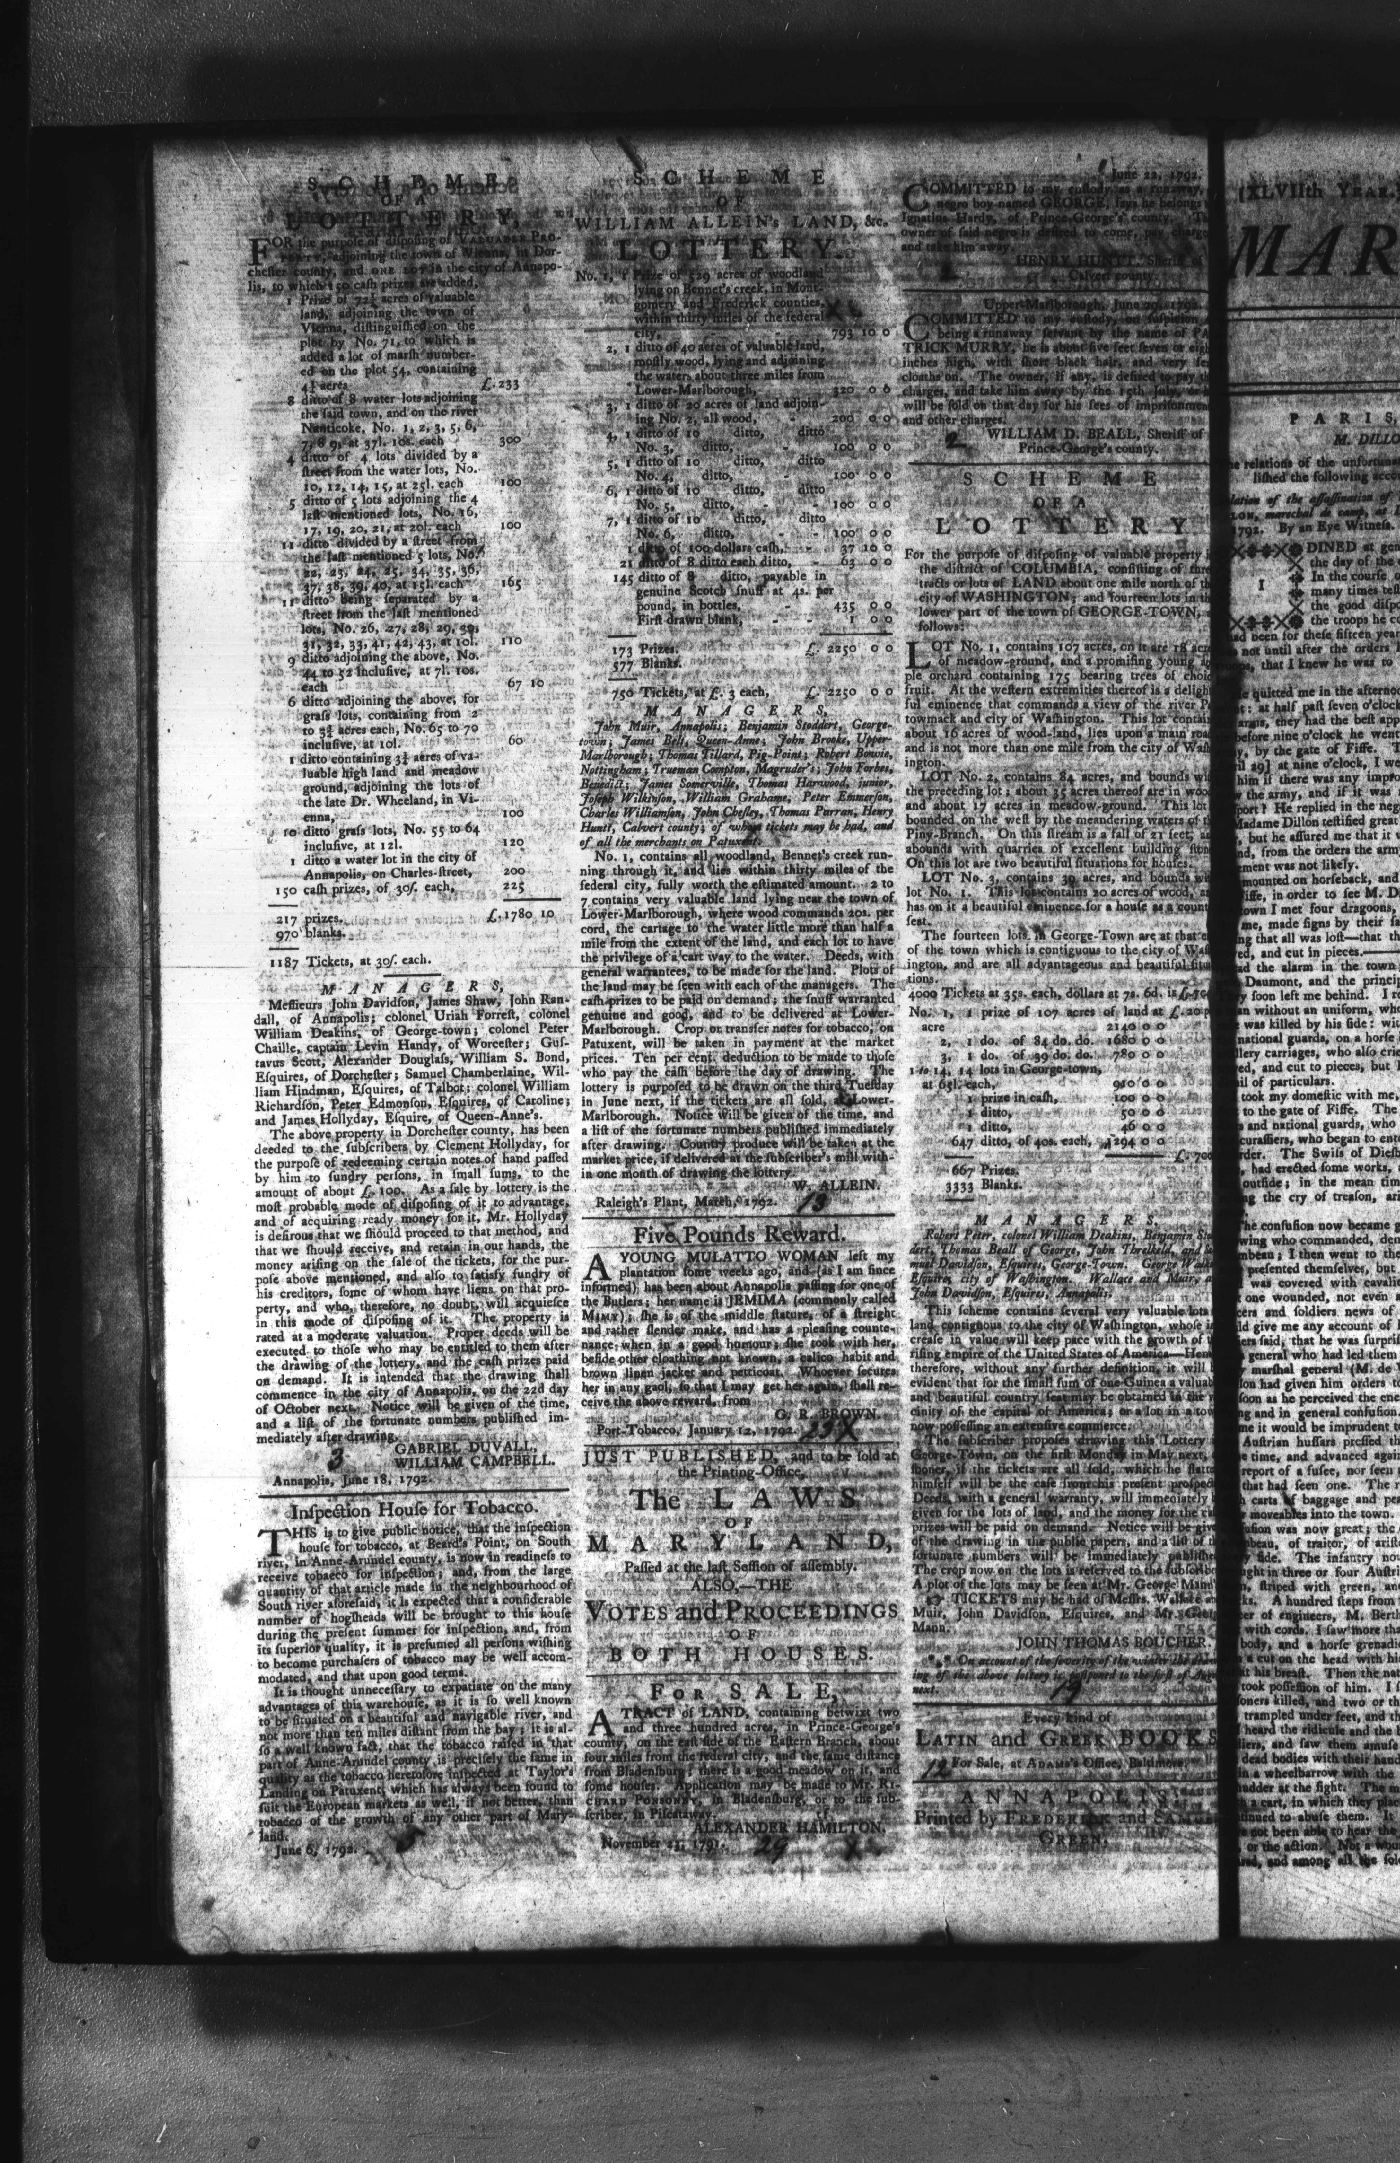 SCHEME
OF A
LOTTERY,
FOR the purpose of disposing of VALUABLE PRO-
PERTY, adjoining the town of Vienna, in Dor-
chester county, and ONE LOT in the city of Annapo-
lis, to which 150 cash prizes are added.
1 Prize of 72½ acres of valuable
land, adjoining the town of
Vienna, distinguished on the
plot by No. 71, to which is
added a lot of marsh number-
ed on the plot 54, containing
4½ acres £.233
8 ditto of 8 water lots adjoining
the said town, and on the river
Nanticoke, No. 1, 2, 3, 5, 6,
7, 8 9, at 37l. 10s. each 300
4 ditto of 4 lots divided by a
street from the water lots, No.
10, 12, 14, 15, at 25l. each 100
5 ditto of 5 lots adjoining the 4
last mentioned lots, No. 16,
17, 19, 20, 21, at 20l. each 100
11 ditto divided by a street from
the last mentioned 5 lots, No.
22, 23, 24, 25, 34, 35, 36,
37, 38, 39, 40, at 15l. each 165
11 ditto being separated by a
street from the last mentioned
lots, No. 26, 27, 28, 29, 30,
31, 32, 33, 41, 42, 43, at 10l. 110
9 ditto adjoining the above, No.
44 to 52 inclusive, at 7l. 10s.
each 67 10
6 ditto adjoining the above, for
grass lots, containing from 2
to 3¾ acres each, No. 65 to 70
inclusive, at 10l. 60
1 ditto containing 3¾ acres of va-
luable high land and meadow
ground, adjoining the lots of
the late Dr. Wheeland, in Vi-
enna, 100
10 ditto grass lots, No. 55 to 64
inclusive, at 12l. 120
1 ditto a water lot in the city of
Annapolis, on Charles-street, 200
150 cash prizes, of 30s. each, 225
217 prizes. £.1780 10
970 blanks.
1187 Tickets, at 30s. each.
MANAGERS,
Messieurs John Davidson, James Shaw, John Ran-
dall, of Annapolis; colonel Uriah Forrest, colonel
William Deakins, of George-town; colonel Peter
Chaille, captain Levin Handy, of Worcester; Gus-
tavus Scott, Alexander Douglass, William S. Bond,
Esquires, of Dorchester; Samuel Chamberlaine, Wil-
liam Hindman, Esquires, of Talbot; colonel William
Richardson, Peter Edmonson, Esquires, of Caroline;
and James Hollyday, Esquire, of Queen-Anne's.
The above property in Dorchester county, has been
deeded to the subscribers by Clement Hollyday, for
the purpose of redeeming certain notes of hand passed
by him to sundry persons, in small sums, to the
amount of about £. 100. As a sale by lottery is the
most probable mode of disposing of it to advantage,
and of acquiring ready money for it, Mr. Hollyday
is desirous that we should proceed to that method, and
that we should receive, and retain in our hands, the
money arising on the sale of the tickets, for the pur-
pose above mentioned, and also to satisfy sundry of
his creditors, some of whom have liens on that pro-
perty, and who, therefore, no doubt, will acquiesce
in this mode of disposing of it. The property is
rated at a moderate valuation. Proper deeds will be
executed to those who may be entitled to them after
the drawing of the lottery, and the cash prizes paid
on demand. It is intended that the drawing shall
commence in the city of Annapolis, on the 22d day
of October next. Notice will be given of the time,
and a list of the fortunate numbers published im-
mediately after drawing.
3 GABRIEL DUVALL,
WILLIAM CAMPBELL.
Annapolis, June 18, 1792.
Inspection House for Tobacco.
THIS is to give public notice, that the inspection
house for tobacco, at Beard's Point, on South
river, in Anne-Arundel county, is now in readiness to
receive tobacco for inspection; and, from the large
quantity of that article made in the neighbourhood of
South river aforesaid, it is expected that a considerable
number of hogsheads will be brought to this house
during the present summer for inspection, and, from
its superior quality, it is presumed all persons wishing
to become purchasers of tobacco may be well accom-
modated, and that upon good terms.
It is thought unnecessary to expatiate on the many
advantages of this warehouse, as it is so well known
to be situated on a beautiful and navigable river, and
not more than ten miles distant from the bay; it is al-
so a well known fact, that the tobacco raised in that
part of Anne-Arundel county is precisely the same in
quality as the tobacco heretofore inspected at Taylor's
Landing on Patuxent, which has always been found to
suit the European markets as well, if not better, than
tobacco of the growth of any other part of Mary-
land.
June 6, 1792.
SCHEME
OF
WILLIAM ALLEIN's LAND, &c.
LOTTERY.
No. 1, 1 Prize of 529 acres of woodland
lying on Bennet's creek, in Mont-
gomery and Frederick counties,
within thirty miles of the federal
city, 793 10 0
2, 1 ditto of 40 acres of valuable land,
mostly wood, lying and adjoining
the waters about three miles from
Lower-Marlborough, 320 0 0
3, 1 ditto of 20 acres of land adjoin-
ing No. 2, all wood, 200 0 0
4, 1 ditto of 10 ditto, ditto
No. 3, ditto, 100 0 0
5, 1 ditto of 10 ditto, ditto
No. 4, ditto, 100 0 0
6, 1 ditto of 10 ditto, ditto
No. 5, ditto, 100 0 0
7, 1 ditto of 10 ditto, ditto
No. 6, ditto, 100 0 0
1 ditto of 100 dollars cash, 37 10 0
21 ditto of 8 ditto each ditto, 63 0 0
145 ditto of 8 ditto, payable in
genuine Scotch snuff at 4s. per
pound, in bottles, 435 0 0
First drawn blank, 1 0 0
173 Prizes. £. 2250 0 0
577 Blanks.
750 Tickets, at £. 3 each, £. 2250 0 0
MANAGERS,
John Muir, Annapolis; Benjamin Stoddert, George-
town; James Bell, Queen-Anne; John Brooke, Upper-
Marlborough; Thomas Tillard, Pig-Point; Robert Bowie,
Nottingham; Trueman Compton, Magruder's; John Forbes,
Benedict; James Somerville, Thomas Harwood, junior,
Joseph Wilkinson, William Grahame, Peter Emmerson,
Charles Williamson, John Chesley, Thomas Parran, Henry
Huntt, Calvert county; of whom tickets may be had, and
of all the merchants on Patuxent.
No. 1, contains all woodland, Bennet's creek run-
ning through it, and lies within thirty miles of the
federal city, fully worth the estimated amount. 2 to
7 contains very valuable land lying near the town of
Lower-Marlborough, where wood commands 20s. per
cord, the cartage to the water little more than half a
mile from the extent of the land, and each lot to have
the privilege of a cart way to the water. Deeds, with
general warrantees, to be made for the land. Plots of
the land may be seen with each of the managers. The
cash prizes to be paid on demand; the snuff warranted
genuine and good, and to be delivered at Lower-
Marlborough. Crop or transfer notes for tobacco, on
Patuxent, will be taken in payment at the market
prices. Ten per cent. deduction to be made to those
who pay the cash before the day of drawing. The
lottery is purposed to be drawn on the third Tuesday
in June next, if the tickets are all sold, at Lower-
Marlborough. Notice will be given of the time, and
a list of the fortunate numbers published immediately
after drawing. Country produce will be taken at the
market price, if delivered at the subscriber's mill with-
in one month of drawing the lottery.
W. ALLEIN.
Raleigh's Plant, March, 1792. 13
Five Pounds Reward.
A YOUNG MULATTO WOMAN left my
plantation some weeks ago, and (as I am since
informed) has been about Annapolis passing for one of
the Butlers; her name is JEMIMA (commonly called
MIMY); she is of the middle stature, of a streight
and rather slender make, and has a pleasing counte-
nance when in a good humour; she took with her,
beside other cloathing not known, a calico habit and
brown linen jacket and petticoat. Whoever secures
her in any gaol, so that I may get her again, shall re-
ceive the above reward, from
G. R. BROWN.
Port-Tobacco, January 12, 1792. 23X
JUST PUBLISHED, and to be sold at
the Printing-Office,
The LAWS
OF
MARYLAND,
Passed at the last Session of assembly.
ALSO,—THE
VOTES and PROCEEDINGS
OF
BOTH HOUSES.
FOR SALE,
A TRACT of LAND, containing betwixt two
and three hundred acres, in Prince-George's
county, on the east side of the Eastern Branch, about
four miles from the federal city, and the same distance
from Bladensburg; there is a good meadow on it, and
some houses. Application may be made to Mr. RI-
CHARD PONSONBY, in Bladensburg, or to the sub-
scriber, in Piscataway.
ALEXANDER HAMILTON.
November 23, 1791. 29 X
June 22, 1792.
COMMITTED to my custody as a runaway,
negro boy named GEORGE, says he belongs
Ignatius Hardy, of Prince-George's county. Th
owner of said negro is desired to come, pay charge
and take him away.
HENRY HUNTT, Sheriff of
Calvert county.
Upper-Marlborough, June 20, 1792.
COMMITTED to my custody, on suspicion
being a runaway servant by the name of PA
TRICK MURRY, he is about five feet seven or eigh
inches high, with short black hair, and very few
cloaths on. The owner, if any, is desired to pay th
charges, and take him away by the 15th July, or
will be sold on that day for his fees of imprisonment
and other charges.
2 WILLIAM D. BEALL, Sheriff of
Prince-George's county.
SCHEME
OF A
LOTTERY
For the purpose of disposing of valuable property i
the district of COLUMBIA, consisting of thre
tracts or lots of LAND about one mile north of th
city of WASHINGTON; and fourteen lots in th
lower part of the town of GEORGE-TOWN,
follows:
LOT No. 1, contains 107 acres, on it are 18 acr
of meadow-ground, and a promising young
ple orchard containing 175 bearing trees of choi
fruit. At the western extremities thereof is a deligh
ful eminence that commands a view of the river P
towmack and city of Washington. This lot contain
about 16 acres of wood-land, lies upon a main road
and is not more than one mile from the city of Wash
ington.
LOT No. 2, contains 84 acres, and bounds wi
the preceding lot; about 35 acres thereof are in wood
and about 17 acres in meadow-ground. This lot
bounded on the west by the meandering waters of
Piny-Branch. On this stream is a fall of 21 feet, a
abounds with quarries of excellent building stone
On this lot are two beautiful situations for houses.
LOT No. 3, contains 39 acres, and bounds wi
lot No. 1. This lot contains 20 acres of wood, a
has on it a beautiful eminence for a house as a count
seat.
The fourteen lots in George-Town are at that e
of the town which is contiguous to the city of Wa
ington, and are all advantageous and beautiful situ
tions.
4000 Tickets at 35s. each, dollars at 7s. 6d. is £.700
No. 1, 1 prize of 107 acres of land at £. 20 p
acre 2140 0 0
2, 1 do. of 84 do. do. 1680 0 0
3, 1 do. of 39 do. do. 780 0 0
1 to 14, 14 lots in George-town,
at 65l. each, 910 0 0
1 prize in cash, 100 0 0
1 ditto, 50 0 0
1 ditto, 46 0 0
647 ditto, of 40s. each, 1294 0 0
£. 700
667 Prizes.
3333 Blanks.
MANAGERS,
Robert Peter, colonel William Deakins, Benjamin Sto
dert, Thomas Beall of George, John Threlkeld, and
muel Davidson, Esquires, George-Town. George Walk
Esquire, city of Washington. Wallace and Muir, a
John Davidson, Esquires, Annapolis.
This scheme contains several very valuable lots
land contiguous to the city of Washington, whose i
crease in value will keep pace with the growth of t
rising empire of the United States of America—Hen
therefore, without any further definition, it will
evident that for the small sum of one Guinea a valuab
and beautiful country seat may be obtained in the v
cinity of the capital of America; or a lot in a tow
now possessing an extensive commerce.
The subscriber proposes drawing this Lottery
George-Town, on the first Monday in May next,
sooner, if the tickets are all sold, which he flatte
himself will be the case from his present prospect
Deeds, with a general warranty, will immediately
given for the lots of land, and the money for the ca
prizes will be paid on demand. Notice will be give
of the drawing in the public papers, and a list of th
fortunate numbers will be immediately publishe
The crop now on the lots is referred to the subscribe
A plot of the lots may be seen at Mr. George Mann
☞ TICKETS may be had of Messrs. Wallace an
Muir, John Davidson, Esquires, and Mr. Geor
Mann.
JOHN THOMAS BOUCHER.
*** On account of the severity of the winter the draw
ing of the above lottery is postponed to the first of Aug
next. 19
Every kind of
LATIN and GREEK BOOKS
12 For Sale, at ADAMS's Office, Baltimore.
ANNAPOLIS:
Printed by FREDERICK and SAMUE
GREEN.
[XLVIIth YEAR
MAR
PARIS,
M. DILLO
he relations of the unfortun
lished the following acco
lation of the assassination of
LON, mareschal de camp, at L
1792. By an Eye Witness.
I DINED at gen
the day of the
In the course
many times test
the good dispo
the troops he co
had been for these fifteen yea
not until after the orders
, that I knew he was to
e quitted me in the afterno
t: at half past seven o'clock
arms, they had the best app
before nine o'clock he went
y, by the gate of Fiffe. T
ril 29] at nine o'clock, I we
him if there was any impr
the army, and if it was
port? He replied in the neg
Madame Dillon testified great
, but he assured me that it
nd, from the orders the arm
ement was not likely.
mounted on horseback, and
iffe, in order to see M. D
own I met four dragoons,
me, made signs by their sa
ng that all was lost—that th
ed, and cut in pieces.—
ad the alarm in the town
Daumont, and the princip
y soon left me behind. I m
an without an uniform, who
was killed by his side: wi
national guards, on a horse
llery carriages, who also crie
ed, and cut to pieces, but
ail of particulars.
took my domestic with me,
to the gate of Fiffe. The
and national guards, who
curassiers, who began to ent
rder. The Swiss of Diesb
, had erected some works,
outside; in the mean tim
ng the cry of treason, an
he confusion now became g
wing who commanded, dem
mbeau; I then went to the
presented themselves, but
was covered with caval
one wounded, not even a
cers and soldiers news of
ld give me any account of
ers said, that he was surpri
general who had led them
marshal general (M. de
on had given him orders to
soon as he perceived the ene
ng and in general confusion.
me it would be imprudent to
Austrian hussars pressed th
e time, and advanced again
report of a fusee, nor seen
that had seen one. The r
h carts of baggage and pe
r moveables into the town.
usion was now great; the
mbeau, of traitor, of arist
y side. The infantry no
ght in three or four Austri
, striped with green, an
ks. A hundred steps from
er of engineers, M. Bert
with cords. I saw more tha
body, and a horse grenadi
a cut on the head with hi
t his breast. Then the nat
took possession of him. I
oners killed, and two or th
trampled under feet, and th
heard the ridicule and the
liers, and saw them amuse
dead bodies with their hand
in a wheelbarrow with the
udder at the sight. The
a cart, in which they plac
tinued to abuse them. I
not been able to hear the
or the action. Not a wo
red, and among all the sol